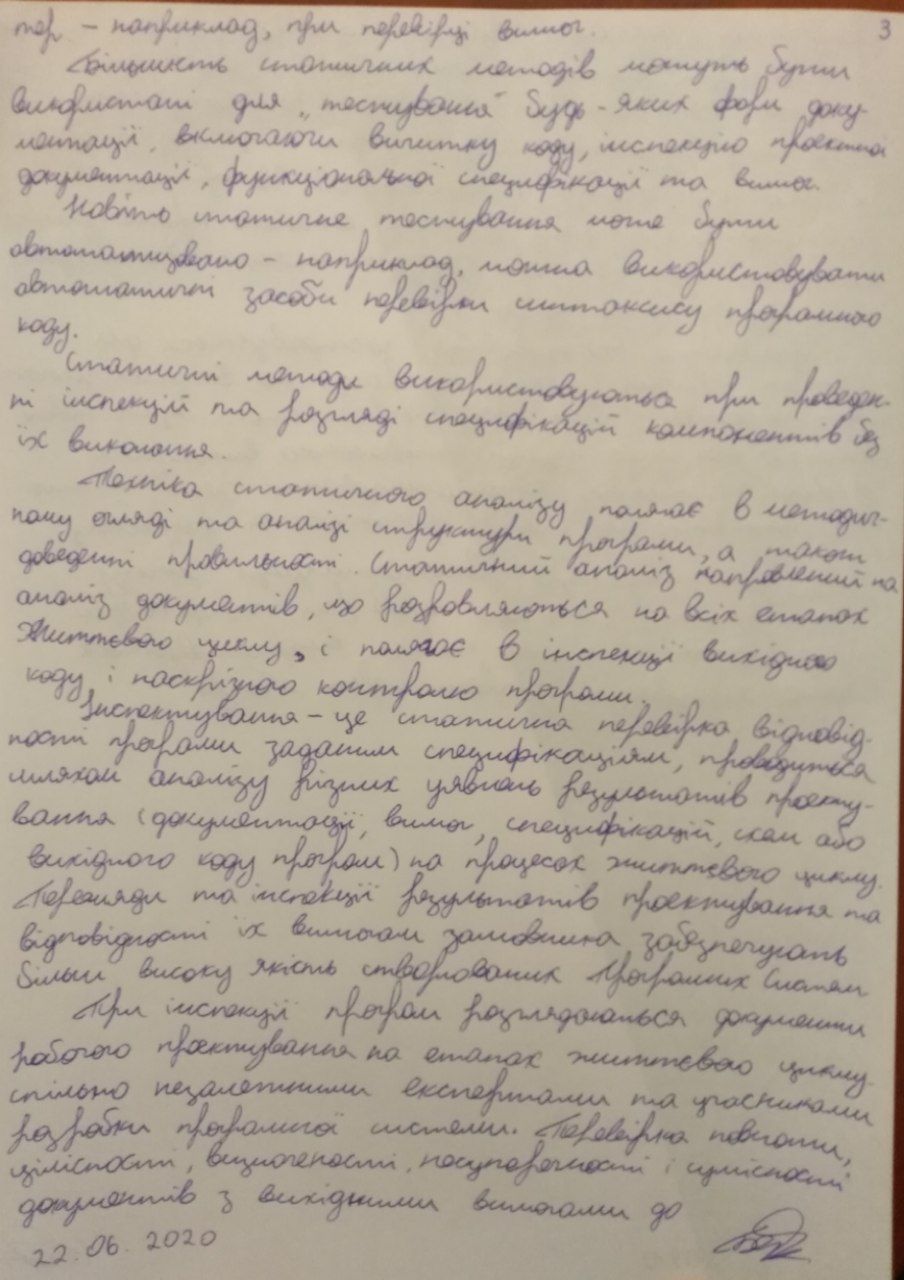 тер – наприклад, при перевірці вимог. 3
Більшість статичних методів можуть бути
використані для „тестування" будь-яких форм доку-
ментації, включаючи вичитку коду, інспекцію проектної
документації, функціональної специфікації та вимог.
Навіть статичне тестування може бути
автоматизовано – наприклад, можна використовувати
автоматичні засоби перевірки синтаксису програмного
коду.
Статичні методи використовуються при проведен-
ні інспекцій та розгляді специфікацій компонентів без
їх виконання.
Техніка статичного аналізу полягає в методич-
ному огляді та аналізі структури програми, а також
доведенні правильності. Статичний аналіз направлений на
аналіз документів, що розробляються на всіх етапах
життєвого циклу, і полягає в інспекції вихідного
коду і наскрізного контролю програми.
Інспектування – це статична перевірка відповід-
ності програми заданим специфікаціям, проводиться
шляхом аналізу різних уявлень результатів проекту-
вання (документації, вимог, специфікацій, схем або
вихідного коду програм) на процесах життєвого циклу.
Перегляди та інспекції результатів проектування та
відповідності їх вимогам замовника забезпечують
більш високу якість створюваних Програмних Систем
При інспекції програм розглядаються документи
робочого проектування на етапах життєвого циклу
спільно незалежними експертами та учасниками
розробки програмної системи. Перевірка повноти,
цілісності, визначеності, несуперечності і сумісності
документів з вихідними вимогами до
22.06.2020